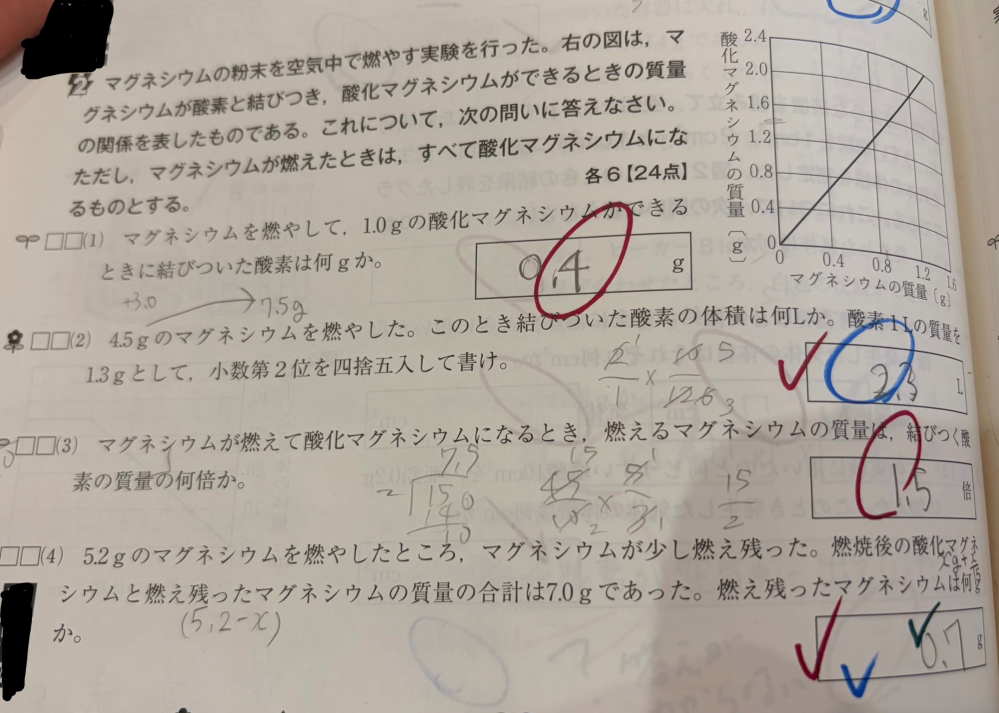 マグネシウムの粉末を空気中で燃やす実験を行った。右の図は，マ
グネシウムが酸素と結びつき，酸化マグネシウムができるときの質量
の関係を表したものである。これについて，次の問いに答えなさい。
ただし，マグネシウムが燃えたときは，すべて酸化マグネシウムにな
るものとする。
各6【24点】
酸化マグネシウムの質量〔g〕
2.4
2.0
1.6
1.2
0.8
0.4
0
0 0.4 0.8 1.2 1.6
マグネシウムの質量〔g〕
□□(1) マグネシウムを燃やして，1.0gの酸化マグネシウムができる
ときに結びついた酸素は何gか。
0.4 g
+3.0
7.5g
□□(2) 4.5gのマグネシウムを燃やした。このとき結びついた酸素の体積は何Lか。酸素1Lの質量を
1.3gとして，小数第2位を四捨五入して書け。
2.3 L
□□(3) マグネシウムが燃えて酸化マグネシウムになるとき，燃えるマグネシウムの質量は，結びつく酸
素の質量の何倍か。
7.5
2 150
15
2
1.5 倍
□□(4) 5.2gのマグネシウムを燃やしたところ，マグネシウムが少し燃え残った。燃焼後の酸化マグネ
シウムと燃え残ったマグネシウムの質量の合計は7.0gであった。燃え残ったマグネシウムは何g
か。
(5,2-x)
0.7 g